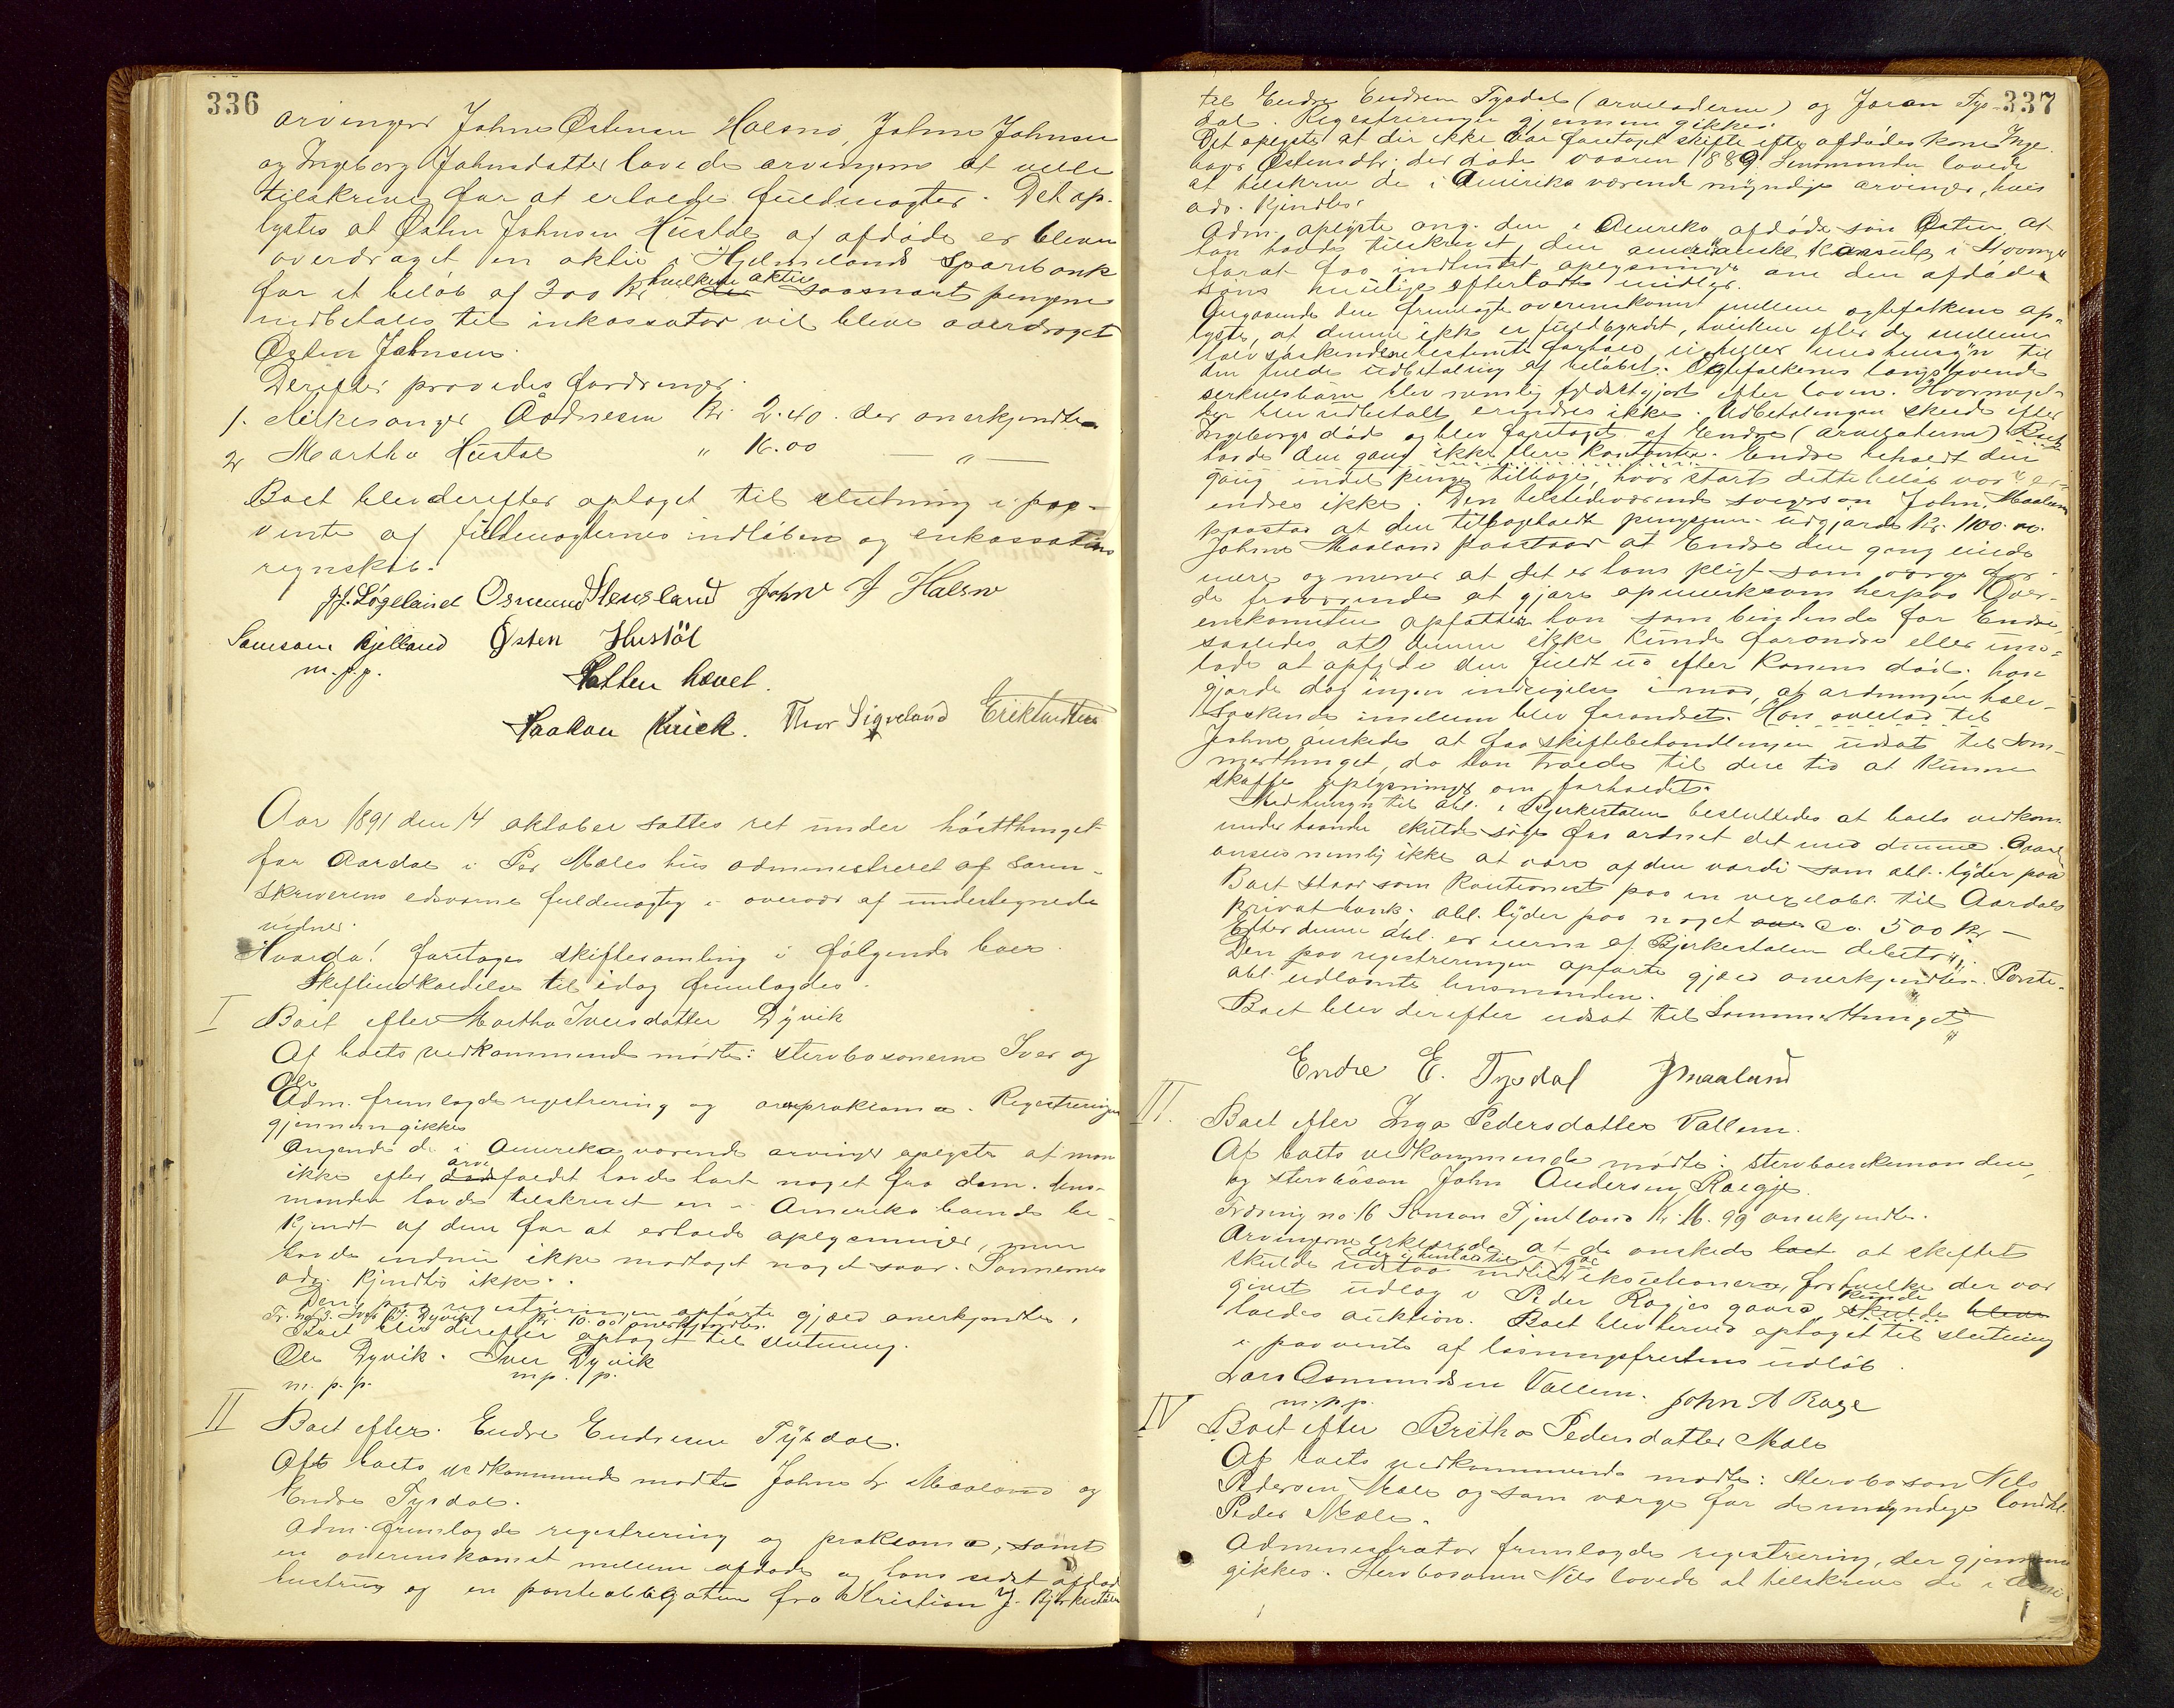 336
arvinger Johne Østensen Halsnø, Johne Johnsen
og Ingeborg Johnsdatter lovede arvingerne at ville
tilskrive for at erholde fuldmagter. Det op-
lystes at Østen Johnsen Hustøl af afdøde er bleven
overdraget en aktie i Hjelmelands sparebank
for et beløb af 300 kr hvilken aktie saasnart pengene
indbetales til inkassator vil blive overdraget
Østen Johnsen.
Derefter prøvedes fordringer.
1. Kirkesanger Aadnesen Kr. 2.40. der anerkjendtes
2 Martha Hustøl " 16.00 — " —
Boet blev derefter optaget til slutning i paa-
vente af fuldmagternes indløben og inkassators
regnskab.
J. J. Løgeland Osmund Hausland John J Halsne
Samson Kjelland Østen Hustöl
m. p. p.
Retten hævet.
Haakon Krick. Thor Sigveland Erik Knudsen
Aar 1891 den 14 oktober sattes ret under høstthinget
for Aardal i Per Mæles hus administreret af soren-
skriverens edsvorne fuldmægtig i overvær af undertegnede
vidner.
Hvorda! foretoges skiftesamling i følgende boer.
Skifteindkaldelse til idag fremlagdes.
I Boet efter Martha Iversdatter Dyvik
Af boets vedkommende mødte: stervbosønerne Iver og
Ole
Adm. fremlagde registrering og proklama. Registreringen
gjennemgikkes
Angaaende de i Amerika værende arvinger oplystes at man
ikke efter arvefaldet havde hørt noget fra dem. Hus-
manden havde tilskrevet en i Amerika boende be-
kjendt af dem for at erholde oplysninger, men
havde endnu ikke modtaget noget svar. Sønnernes
adr. kjendtes ikke.
Den paa registreringen opførte gjæld anerkjendtes.
Fr. no 3. Dyvik Kr. 10.00 anerkjendtes.
Boet blev derefter optaget til slutning.
Ole Dyvik. Iver Dyvik
m. p. p. m. p. p.
II Boet efter. Endre Endresen Tysdal.
Af boets vedkommende mødte Johne L Maaland og
Endre Tysdal.
Adm. fremlagde registrering og proklama, samt
en overenskomst mellem afdøde og hans sidst afdøde
hustru og en panteobligation fra Kristian J. Bjerkestalen
337
til Endre Endresen Tysdal (arveladeren) og Joran Tys-
dal. Registreringen gjennemgikkes.
Det oplystes at der ikke var foretaget skifte efter afdødes kone Inge-
borg Østensdtr. der døde vaaren 1889 Svennunden lovede
at tilskrive de i Amerika værende myndige arvinger, hvis
adr. kjendtes.
Adm. oplyste ang. den i Amerika afdøde søn Østen, at
han havde tilskrevet den amerikanske konsul i Stavanger
forat faa indhentet oplysninger om den afdøde
søns mulige efterladte midler.
Angaaende den fremlagte overenskomst mellem egtefolkene op-
lystes, at denne ikke er fuldbyrdet, hverken efter det mellem
halvsøskendene bestemte forhold ei heller med hensyn til
den fulde udbetaling af beløbet. Egtefolkenes langtlevende
særkulsbarn blev nemlig fyldestgjort efter loven. Hvormeget
der blev udbetalt erindres ikke. Udbetalingen skede efter
Ingeborgs død og blev foretaget af Endre (arveladeren)
havde den gang ikke flere kontanter. Endre beholdt den
gang endel penge tilbage, hvor stort dette beløb var er-
indres ikke. Den tilstedeværende svigersøn John Maaland
paastod at den tilbageholdt pengesum udgjorde kr. 1100.00.
Johne Maaland paastaar at Endre den gang eiede
mere og mener at det er hans pligt som værge for
de fraværende at gjøre opmerksom herpaa. Over-
enskomsten opfatter han som bindende for Endre,
saaledes at denne ikke kunde forandre eller und-
lade at opfylde den fuldt ud efter konens død. han
gjorde dog ingen indsigelse imod, at ordningen halv-
søskende imellem blev forandret. Han overlod til
Johne ønskede at faa skiftebehandlingen udsat til som-
merthinget, da han troede til den tid at kunne
skaffe oplysninger om forholdet.
Med hensyn til obl. i Bjerkestalen besluttedes at boets vedkom.
under haanden skulde søge faa ordnet det med denne. Gaarden
ansees nemlig ikke at være af den værdi som obl. lyder paa
Boet staar som kautionist paa en vexelobl. til Aardals
privatbank. obl. lyder paa noget ca. 500 kr —
Efter denne obl. er eieren af Bjerkestalen debitor.
Den paa registreringen opførte gjæld anerkjendtes. Pante-
obl. udlaantes husmanden.
Boet blev derefter udsat til Sommerthinget
Endre E. Tysdal J Maaland
III. Boet efter Inga Pedersdatter Vallem.
Af boets vedkommende mødte: stervboenkemanden
og stervbosøn John Andersen Roegje.
Fordring no. 16 Samson Fjentland Kr. 16.99 anerkjendtes.
Arvingerne erklærede at de ønskede at skiftet
skulde udstaa indtil eksekutionerne, for hvilke der var
givet udlæg i Peder Ragjes gaard, kunde
holdes auktion. Boet blev herved optaget til slutning
i paavente af løsningsfristens udløb.
Lars Asmundsen Vallem. John A Rage
m. p. p.
IV Boet efter Britha Pedersdatter Mæle
Af boets vedkommende mødte: stervbosøn Nils
Pedersen Mæle og som værge for de umyndige landhl.
Peder Mæle.
Administrator fremlagde registrering, der gjennem
gikkes. Stervbosønnen Nils lovede at tilskrive de i Ame